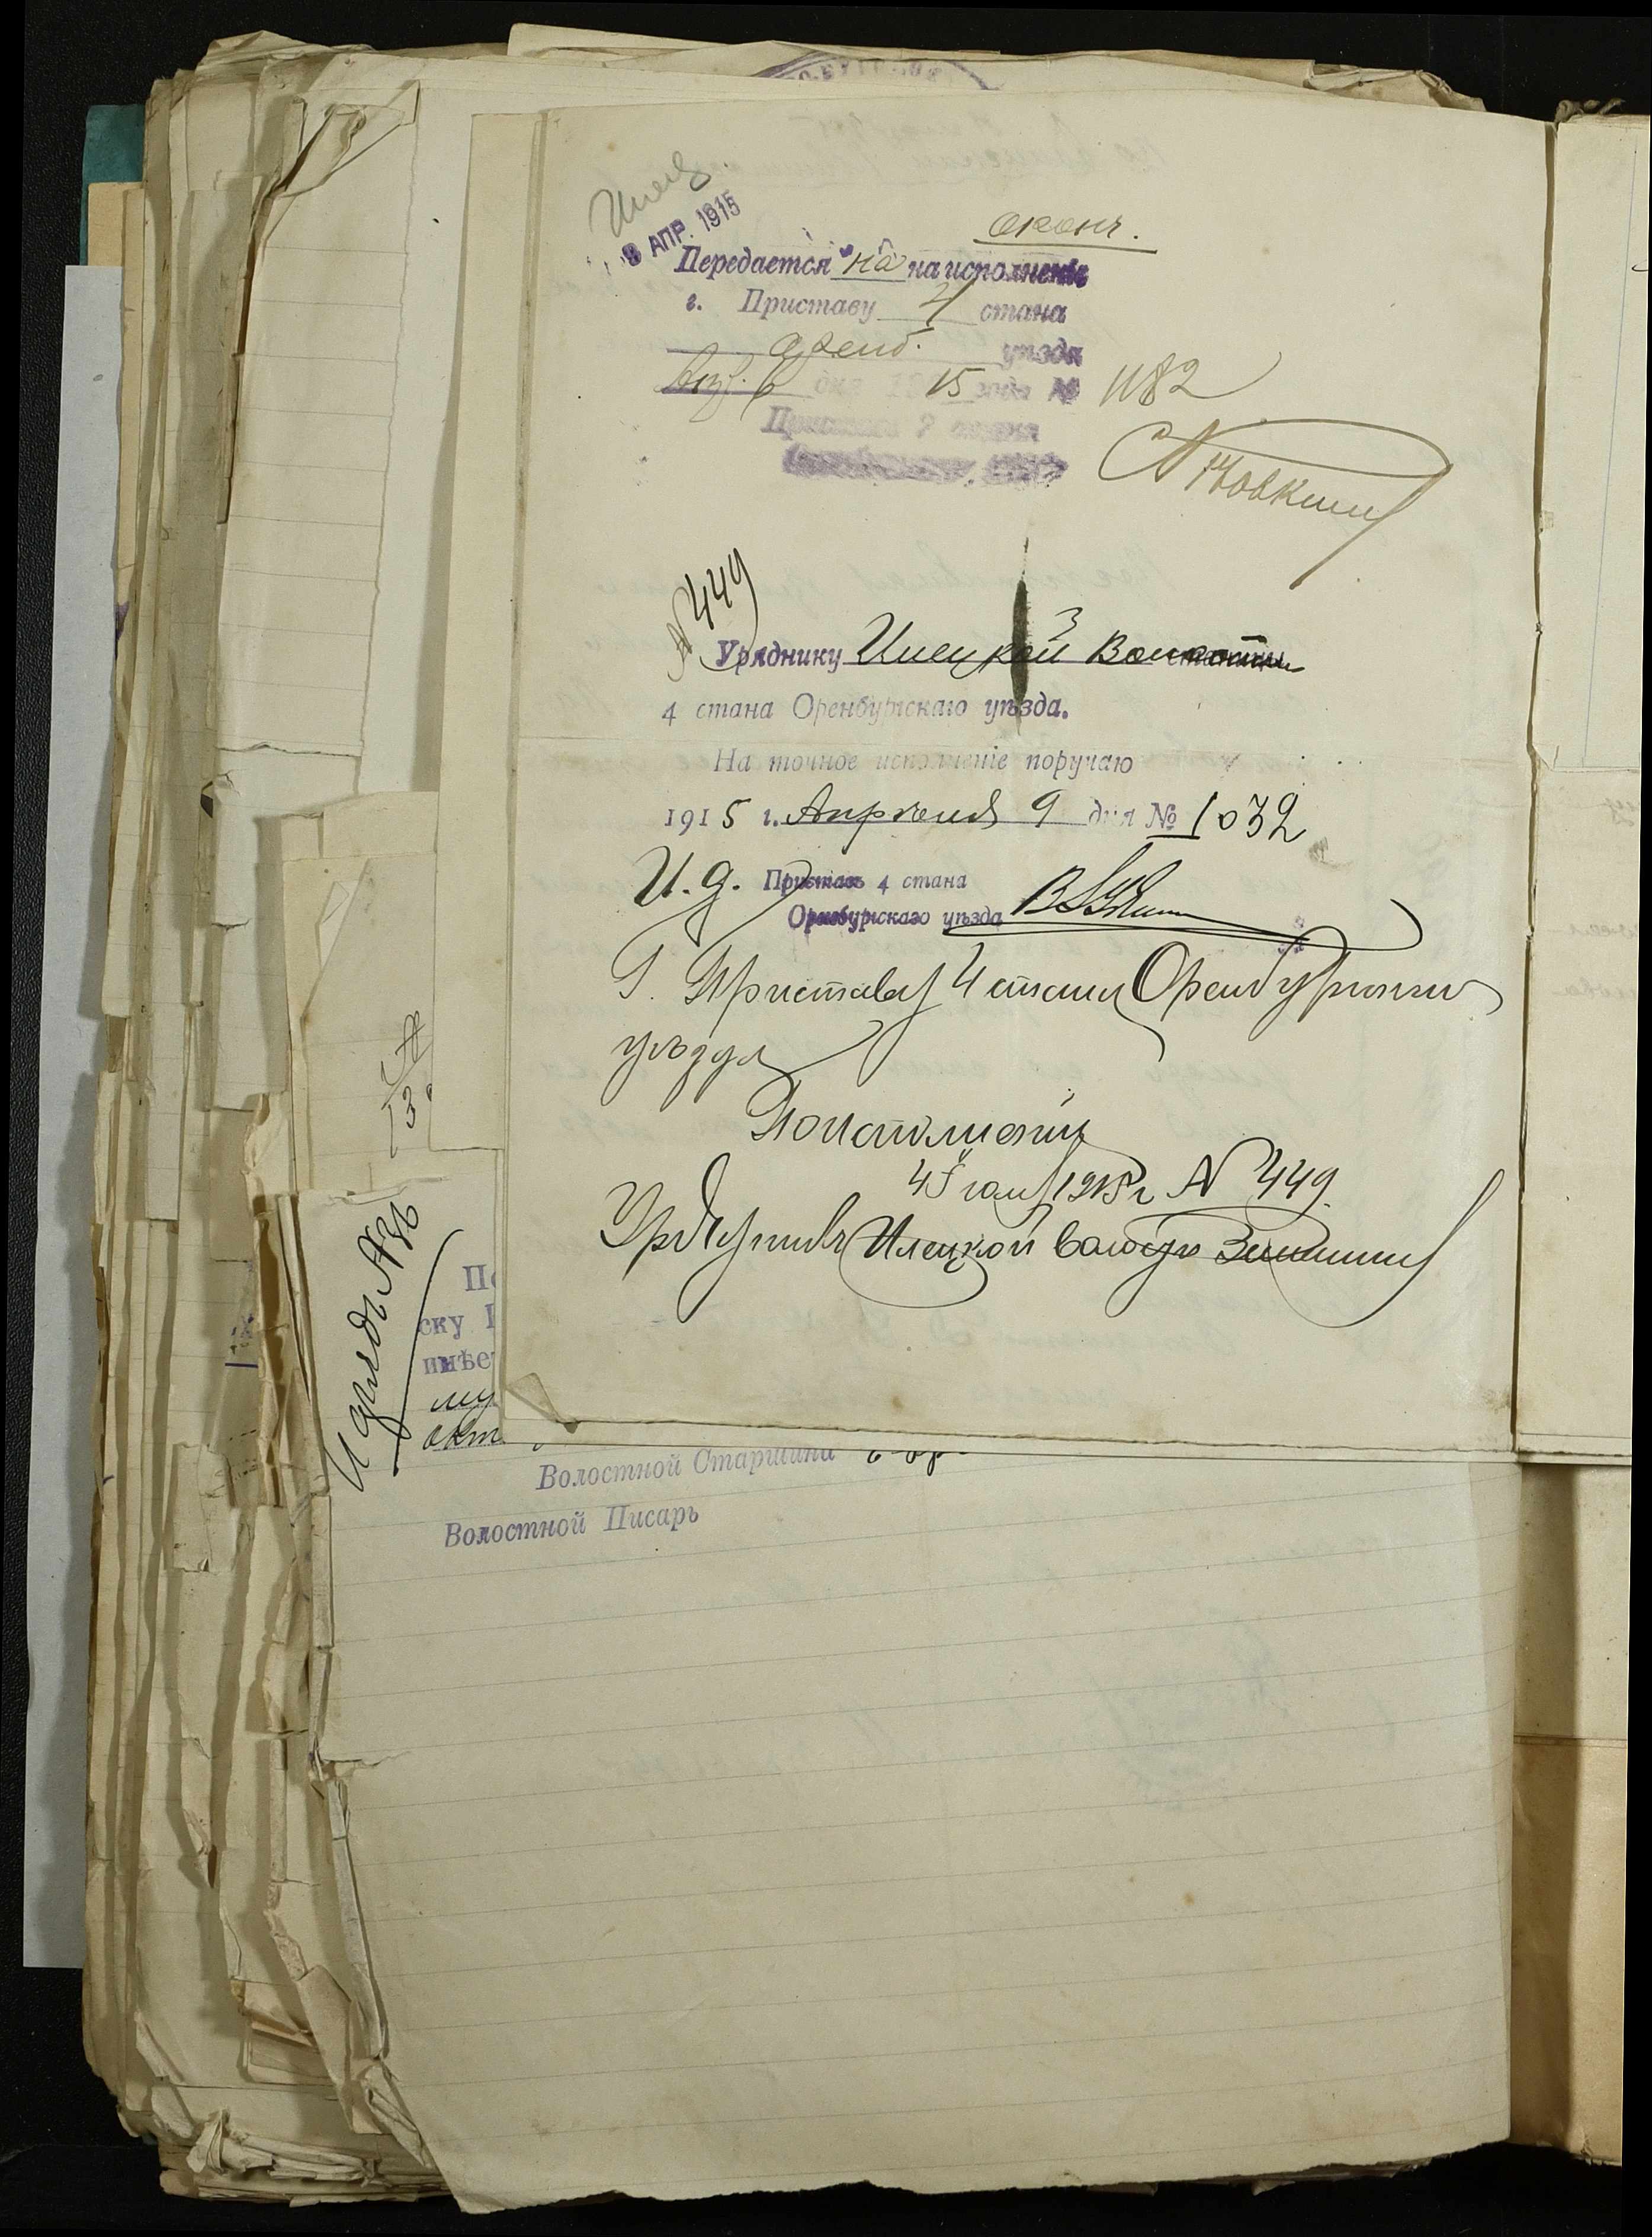 Илец.
8 АПР. 1915
оконч.
Передается на на исполненіе
г. Приставу 4 стана
Оренб. уѣзда
6 дня 1915 года № 1182
Приставъ 2 стана
№ 449
Уряднику Илецкой Волости
4 стана Оренбургскаго уѣзда.
На точное исполненіе поручаю
1915 г. Апреля 9 дня № 1032
И. д. Приставъ 4 стана
Оренбургскаго уѣзда
Г. Приставу 4 стана Оренбургскаго
уѣзда
По исполненіи
1915 г № 449
Урядникъ Илецкой волости
По
ску
имѣе
му
окт.
Волостной Старшина
Волостной Писарь